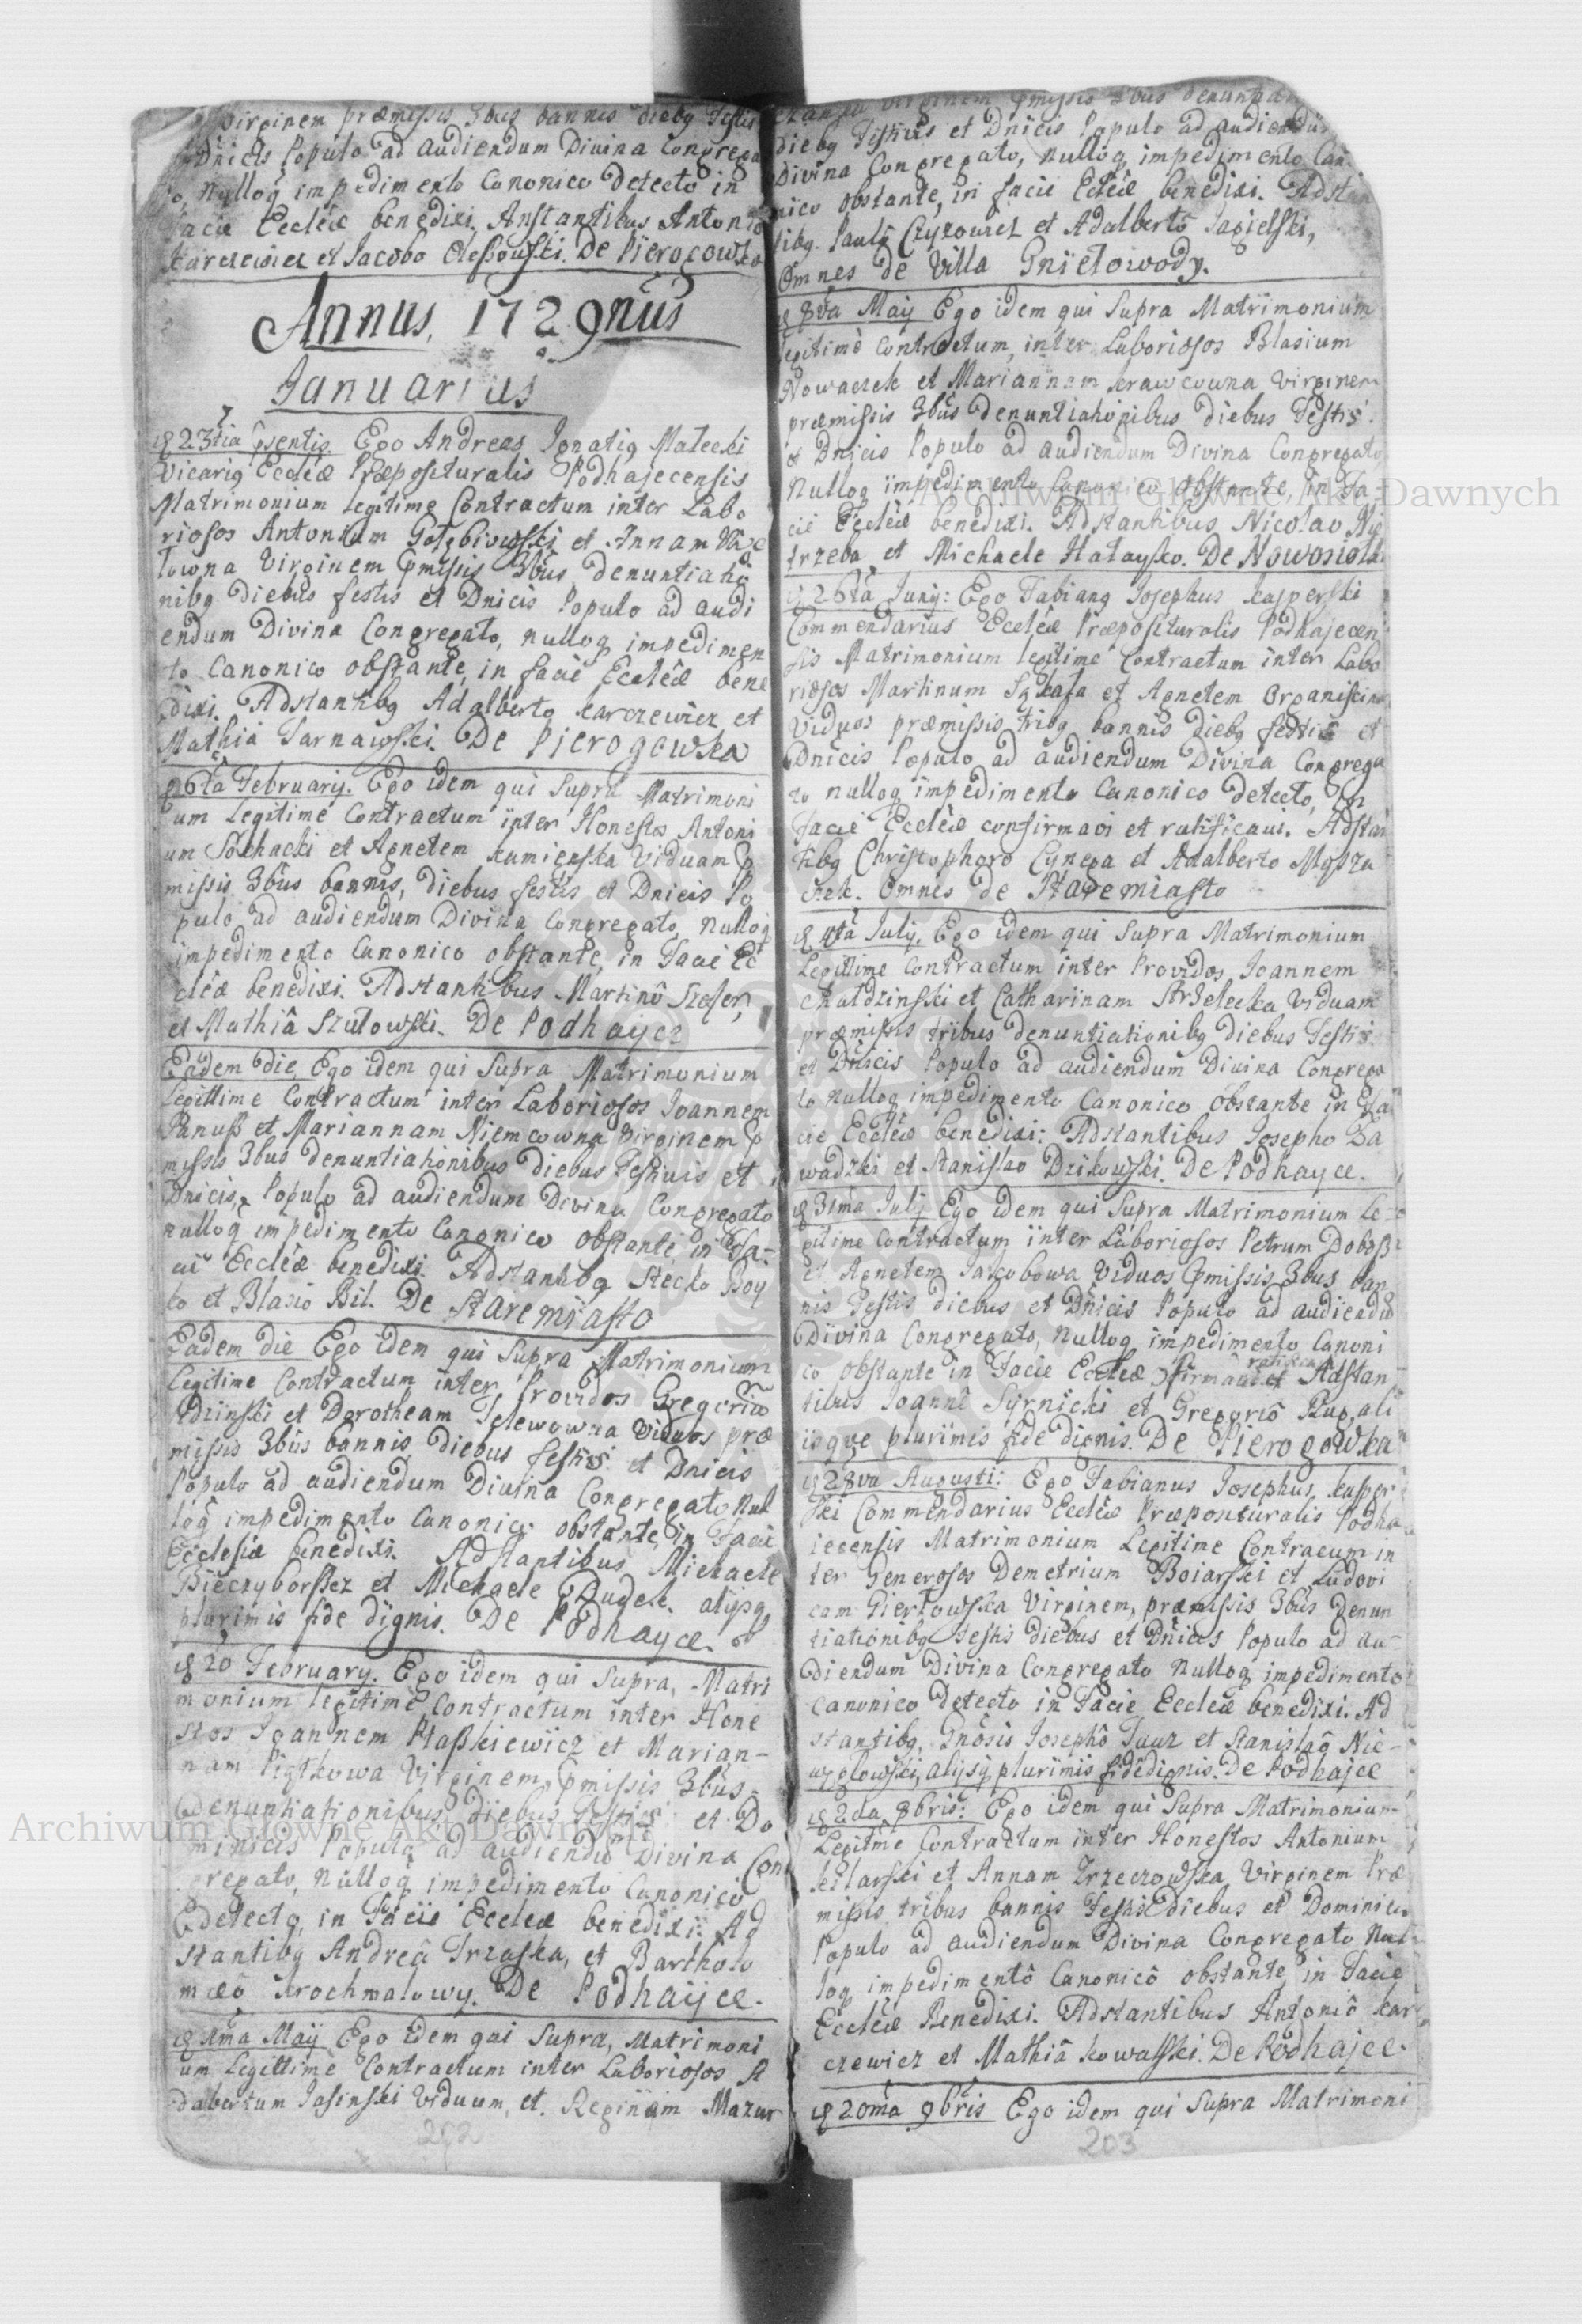 Virginem præmissis 3bus bannis diebq Festis
Dnicis Populo ad audiendum Divina Congrega
to, Nulloq impedimento Canonico detecto in
facie Ecclêæ benedixi. Anstantibus Antonio
Karczewicz et Jacobo Olessowski. De Pierogowka
Annus, 1729nus
Januarius
23tia psentis. Ego Andreas Ignatiq Malecki
Vicariq Ecclêæ Præposituralis Podhajecensis
Matrimonium legitime Contractum inter Labo
riosos Antonium Gołębiowski et Annam
łowna Virginem pmissis 3bus denuntiatio
nibq diebus festis et Dnicis Populo ad audi
endum Divina Congregato, nulloq impedimen
to Canonico obstante, in facie Ecclêæ bene
dixi. Adstantibq Adalberto Karczewicz et
Mathia Tarnawski. De Pierogowka
26ta February. Ego idem qui Supra Matrimoni
um Legitime Contractum inter Honestos Antoni
um Sochacki et Agnetem Kamienska Viduam p
missis 3bus bannis, diebus festis et Dnicis Po
pulo ad audiendum Divina Congregato, Nulloq
impedimento Canonico obstante, in Facie Ec
clêæ benedixi. Adstantibus Martinô Szefer,
et Mathiâ Szulowski. De Podhayce
Eadem die, Ego idem qui Supra Matrimonium
Legittime Contractum inter Laboriosos Joannem
Panuß et Mariannam Niemcowna Virginem p
missis 3bus denuntiationibus diebus Festiuis et
Dnicis, Populo ad audiendum Divina Congregato
nulloq impedimento Canonico obstante in Fa-
cie Ecclêæ benedixi. Adstantibq Stecko Boy
ko et Blasio Bil. De Staremiasto
Eadem die Ego idem qui Supra Matrimonium
Legitime Contractum inter Providos Gregoriũ
Edziinski et Dorotheam Telewowna Viduos præ
missis 3bus bannis diebus festis et Dnicis
Populo ad audiendum Divina Congregato Nul
loq impedimento Canonico obstante, in Facie
Ecclesiæ benedixi. Adstantibus Michaele
Bieczyborssez et Michaele Dudek. alijsq
plurimis fide dignis. De Podhayce.
20 February. Ego idem qui Supra, Matri
monium legitime Contractum inter Hone
stos Joannem Ptaßkiewicz et Marian-
nam Piątkowa Virginem, pmissis 3bus
denuntiationibus diebus Festis et Do
minicis Populo ad audiendũ Divina Con
gregato, Nulloq impedimento Canonico
detecto, in Facie Eccleæ benedixi: Ad
stantibq Andreâ Trzaska, et Bartholo
mæô Krochmalowy. De Podhaijce.
1ma Maij Ego idem qui Supra, Matrimoni
um Legittime Contractum inter Laboriosos A
dalbertum Jasinski Viduum, et. Reginam Mazur
202
Virginem pmissis 3bus denuntia
diebq Festiuis et Dnicis Populo ad audiendũ
Divina Congregato, nulloq impedimento Cano
nico obstante, in facie Ecclêæ benedixi. Adstan
tibq. Paulô Czyzowicz et Adalbertô Jagielski,
Omnes de Villa Gniełowody.
8va Maij Ego idem qui Supra Matrimonium
legitimè Contractum, inter Laboriosos Blasium
Nowaczek et Mariannam Krawcowna Virginem
præmissis 3bus denuntiationibus diebus Festis
et Dnicis Populo ad audiendum Divina Congregato
Nulloq impedimento Canonico obstante, in Fa-
cie Ecclêæ benedixi. Adstantibus Nicolao Nie
trzeba et Michaele Hałaysko. De Nowosiolka
26ta Juny: Ego Fabianq Josephus Kasperski
Commendarius Ecclêæ Præposituralis Podhajecen
sis Matrimonium legitime Contractum inter Labo
riosos Martinum Skała et Agnetem Organiscina
Viduos præmissis tribq bannis diebq festis et
Dnicis Populo ad audiendum Divina Congrega
to nulloq impedimento Canonico detecto, in
Facie Ecclêæ confirmavi et ratificaui. Adstan
tibq Christophoro Cynega et Adalberto Mosza
czek. Omnes de Staremiasto
4ta July. Ego idem qui Supra Matrimonium
Legittime Contractum inter Providos, Joannem
Chałdzinski et Catharinam Strzelecka Viduam
præmissis tribus denuntiationibq diebus Festis
et Dnicis Populo ad audiendum Divina Congrega
to nulloq impedimento Canonico obstante in Fa
cie Ecclêæ benedixi: Adstantibus Josepho Za
wadzki et Stanislao Dzikowski. De Podhayce.
31ma July Ego idem qui Supra Matrimonium Le-
gitime Contractum inter Laboriosos Petrum Doboß
et Agnetem Jakobowa Viduos pmissis 3bus ban
nis Festis diebus et Dnicis Populo ad audiendũ
Divina Congregato, nulloq impedimento Canoni
co obstante in Facie Eccleæ 9firmaui et ratifica Adstan
tibus Joannê Syrnicki et Gregoriô Kup, ali
isque plurimis fide dignis. De Pierogowka
28va Augusti: Ego Fabianus Josephus, Kasper
ski Commendarius Ecclêæ Præposituralis Podha
iecensis Matrimonium Legitime Contracum in
ter Generosos Demetrium Boiarski et Ludovi
cam Giertowska Virginem, præmissis 3bus Denun
tiationibq Festis diebus et Dnicis Populo ad au-
diendum Divina Congregato Nulloq impedimento
Canonico detecto in Facie Eccleæ benedixi. Ad
stantibq Gnôsis Josephô Jauz et Stanislaô Nie-
węglowski, alijsq plurimis fidêdignis. De Podhajce
2da 8bris: Ego idem qui Supra Matrimonium
Legitme Contractum inter Honestos Antonium
Keilarski et Annam Trzeczowska, Virginem Præ
missis tribus bannis Festis diebus et Dominicis
Populo ad audiendum Divina Congregato Nul
loq impedimentô Canonicô obstante in Facie
Ecclêæ Benedixi. Adstantibus Antoniô Kar
czewicz et Mathiâ Kowalski. De Podhajce.
20ma 9bris Ego idem qui Supra Matrimoni
203
Archiwum Główne Akt Dawnych
Archiwum Główne Akt Dawnych